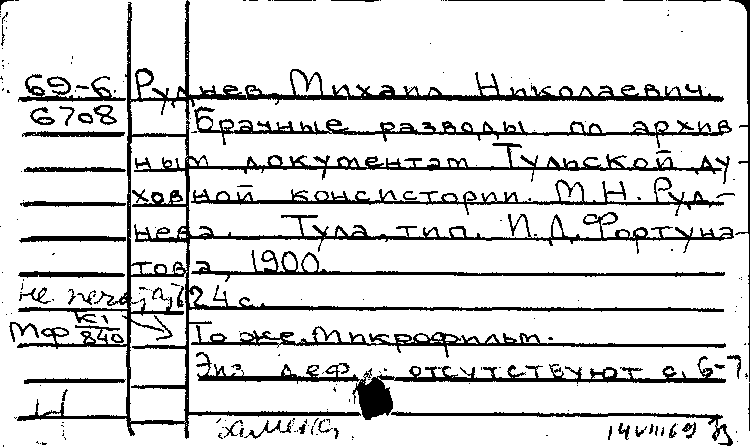 69-6 Руднев, Михаил Николаевич.
6708 Брачные разводы по архив-
ным документам Тульской ду-
ховной консистории. М.Н. Руд-
нева. Тула, тип. И.Д. Фортуна-
това, 1900.
не печатать 24 с.
Мф К1/840 То же. Микрофильм.
Экз деф.: отсутствуют с. 6-7.
Н
замена 14 VIII 69